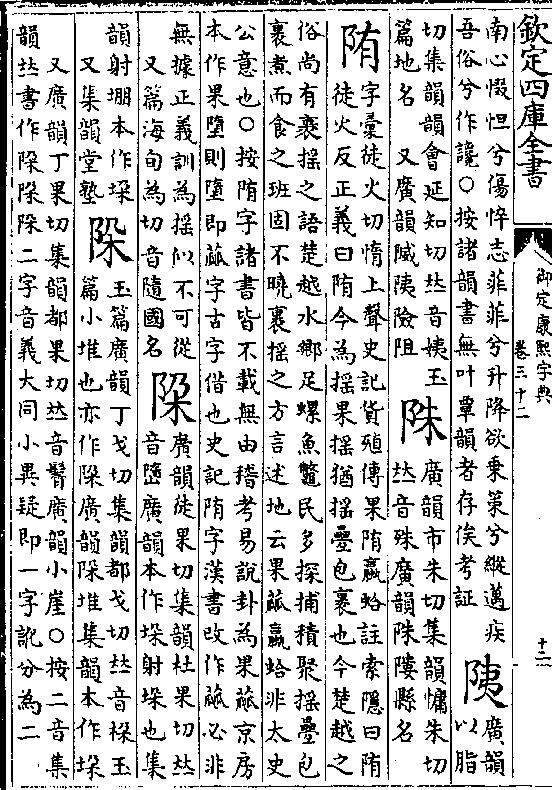 欽定四庫全書
御定康熙字典
卷三十二
十二
南心惙怛兮傷悴志菲菲兮升降欲乗策兮縱邁疾
吾俗兮作讒○按諸韻書無叶覃韻者存俟考証 陦廣韻以脂
切集韻韻會延知切𠀤音姨玉
篇地名 又廣韻陚陦險阻 陎廣韻市朱切集韻慵朱切
𠀤音殊廣韻陎𨻻縣名
陏字彙徒火切惰上聲史記貨殖傳果陏蠃蛤註索隱曰陏
徒火反正義曰陏今為㨱果㨱猶㨱疊包裹也今楚越之
俗尚有裹㨱之語楚越水鄉足螺魚鼈民多採捕積聚㨱疊包
裹煮而食之班固不曉裹㨱之方言述地云果蓏蠃蛤非太史
公意也○按陏字諸書皆不載無由稽考易說卦為果蓏京房
本作果墮則墮即蓏字古字借也史記陏字漢書改作蓏必非
無據正義訓為㨱似不可從
又篇海旬為切音隨國名 陊廣韻徒果切集韻杜果切𠀤
音墮廣韻本作垛射垛也集
韻射堋本作垜
又集韻堂塾 𨹃玉篇廣韻丁戈切集韻都戈切𠀤音棎玉
篇小堆也亦作𨹃廣韻𨹃堆集韻本作垜
又廣韻丁果切集韻都果切𠀤音鬌廣韻小崖○按二音集
韻𠀤書作𨹃𨹃𨹃二字音義大同小異疑即一字訛分為二